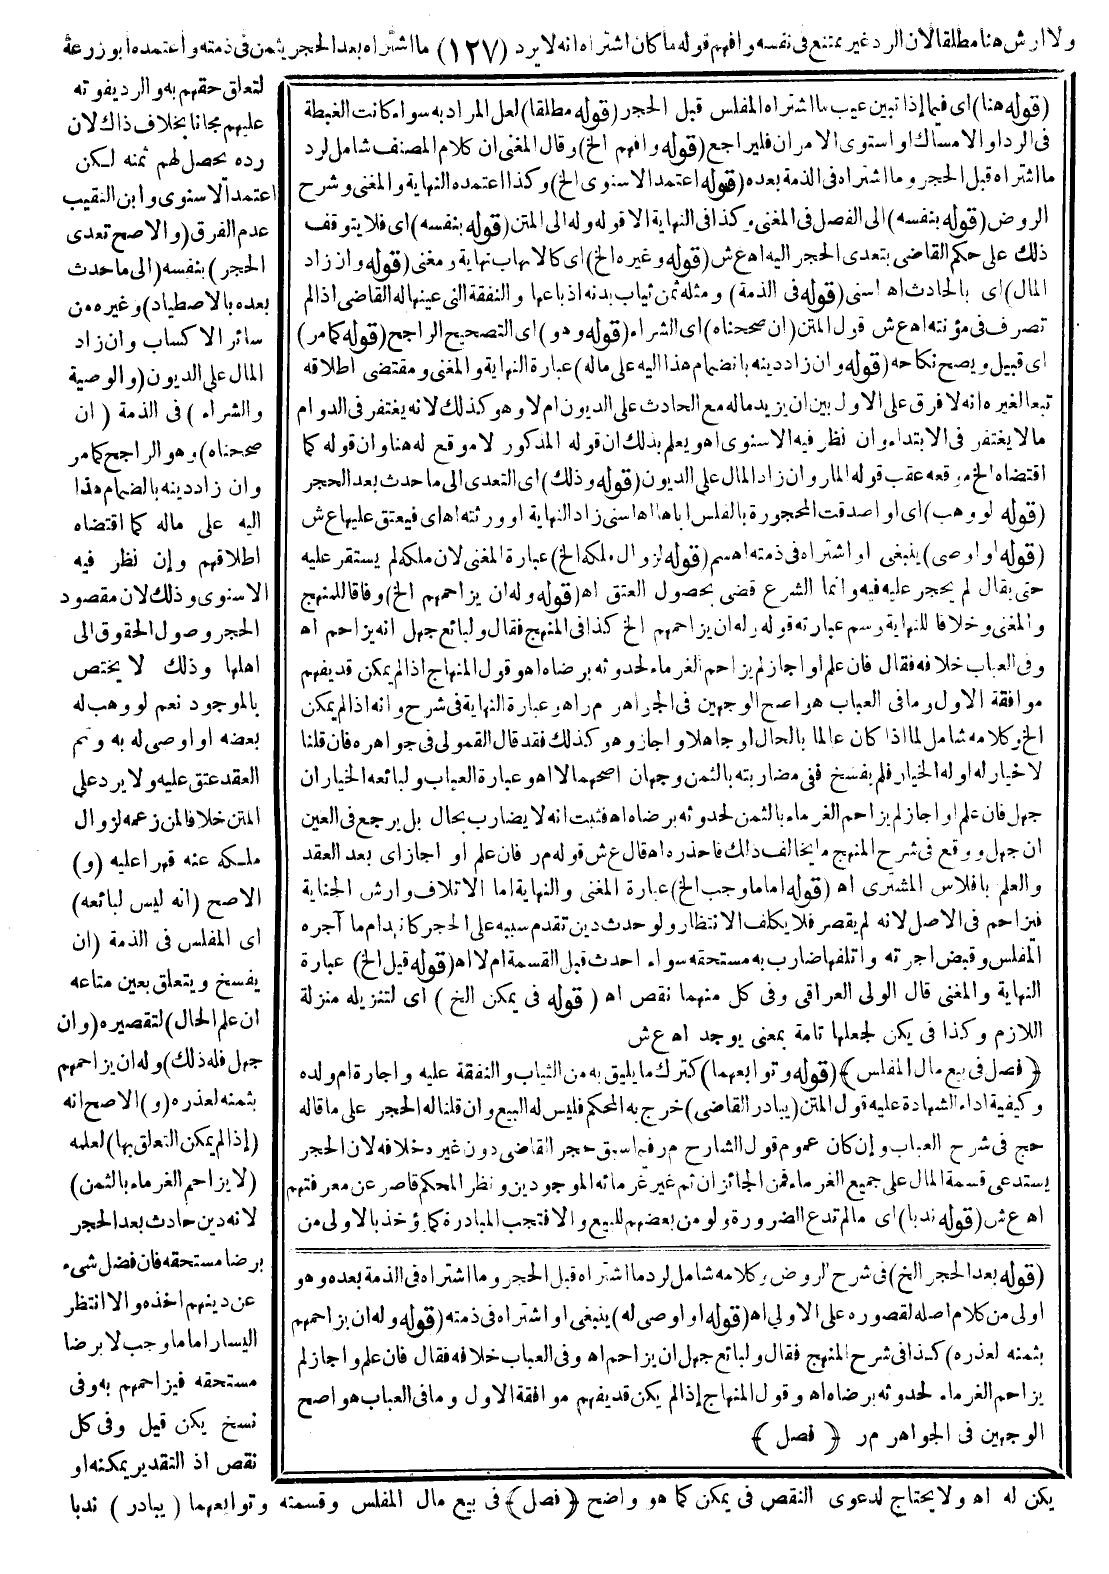 ولا ارش هنا مطلقا لان الرد غير ممتنع فى نفسه وافهم قوله ما كان اشتراه انه لا يرد (١٢٧) ما اشتراه بعد الحجر بثمن فى ذمته واعتمده ابو زرعة
لتعلق حقهم به والرد يفوته
عليهم مجانا بخلاف ذاك لان
رده يحصل لهم ثمنه لكن
اعتمد الاسنوى وابن النقيب
عدم الفرق (والاصح تعدى
الحجر) بنفسه (الى ما حدث
بعده بالاصطياد) وغيره من
سائر الاكساب وان زاد
المال على الديون (والوصية
والشراء) فى الذمة (ان
صححناه) وهو الراجح كما مر
وان زاد دينه بالضمام هذا
اليه على ماله كما اقتضاه
اطلاقهم وإن نظر فيه
الاسنوى وذلك لان مقصود
الحجر وصول الحقوق الى
اهلها وذلك لا يختص
بالموجود نعم لو وهب له
بعضه او اوصى له به وتم
العقد عتق عليه ولا يرد على
المتن خلافا لمن زعمه لزوال
ملكه عنه قهرا عليه (و)
الاصح (انه ليس لبائعه)
اى المفلس فى الذمة (ان
يفسخ ويتعلق بعين متاعه
ان علم الحال) لتقصيره (وان
جهل فله ذلك) وله ان يزاحمهم
بثمنه لعذره (و) الاصح انه
(إذا لم يمكن التعلق بها) لعلمه
(لا يزاحم الغرماء بالثمن)
لانه دين حادث بعد الحجر
برضا مستحقه فان فضل شىء
عن دينهم اخذه والا انتظر
اليسار اما ما وجب لا برضا
مستحقه فيزاحمهم به وفى
نسخ يكن قيل وفى كل
نقص اذ التقدير يمكنه او
(قوله هنا) اى فيما إذا تبين عيب ما اشتراه المفلس قبل الحجر (قوله مطلقا) لعل المراد به سواء كانت الغبطة
فى الرد او الامساك او استوى الامران فليراجع (قوله وافهم الخ) وقال المغنى ان كلام المصنف شامل لرد
ما اشتراه قبل الحجر وما اشتراه فى الذمة بعده (قوله اعتمد الاسنوى الخ) وكذا اعتمده النهاية والمغنى وشرح
الروض (قوله بنفسه) الى الفصل فى المغنى وكذا فى النهاية الا قوله وله الى المتن (قوله بنفسه) اى فلا يتوقف
ذلك على حكم القاضى بتعدى الحجر اليه اه ع ش (قوله وغيره الخ) اى كالاتهاب نهاية ومغنى (قوله وان زاد
المال) اى بالحادث اه اسنى (قوله فى الذمة) ومثله ثمن ثياب بدنه اذ باعها والنفقة التى عينها له القاضى اذا لم
تصرف فى مؤنته اه ع ش قول المتن (ان صححناه) اى الشراء (قوله وهو) اى التصحيح الراجح (قوله كما مر)
اى قبيل ويصح نكاحه (قوله وان زاد دينه بانضمام هذا اليه على ماله) عبارة النهاية والمغنى ومقتضى اطلاقه
تبعا لغيره انه لا فرق على الاول بين ان يزيد ماله مع الحادث على الديون ام لا وهو كذلك لانه يغتفر فى الدوام
ما لا يغتفر فى الابتداء وان نظر فيه الاسنوى اه ويعلم بذلك ان قوله المذكور لا موقع له هنا وان قوله كما
اقتضاه الخ موقعه عقب قوله المار وان زاد المال على الديون (قوله وذلك) اى التعدى الى ما حدث بعد الحجر
(قوله لو وهب) اى او اصدقت المحجورة بالفلس اباها اه اسنى زاد النهاية او ورثته اه اى فيعتق عليها ع ش
(قوله او اوصى) ينبغى او اشتراه فى ذمته اه سم (قوله لزوال ملكه الخ) عبارة المغنى لان ملكه لم يستقر عليه
حتى يقال لم يحجر عليه فيه وانما الشرع قضى بحصول العتق اه (قوله وله ان يزاحمهم الخ) وفاقا للمنهج
والمغنى وخلافا للنهاية وسم عبارته قوله وله ان يزاحمهم الخ كذا فى المنهج فقال ولبائع جهل انه يزاحم اه
وفى العباب خلافه فقال فان علم او اجاز لم يزاحم الغرماء لحدوثه برضاه اه وقول المنهاج اذا لم يمكن قد يفهم
موافقة الاول وما فى العباب هو اصح الوجهين فى الجواهر م ر اه وعبارة النهاية فى شرح وانه اذا لم يمكن
الخ وكلامه شامل لما اذا كان عالما بالحال او جاهلا واجاز وهو كذلك فقد قال القمولى فى جواهره فان قلنا
لا خيار له او له الخيار فلم يفسخ ففى مضاربته بالثمن وجهان اصحهما لا اه وعبارة العباب ولبائعه الخيار ان
جهل فان علم او اجاز لم يزاحم الغرماء بالثمن لحدوثه برضاه اه فثبت انه لا يضارب بحال بل يرجع فى العين
ان جهل ووقع فى شرح المنهج ما يخالف ذلك فاحذره اه قال ع ش قوله م ر فان علم او اجاز اى بعد العقد
والعلم بافلاس المشترى اه (قوله اما ما وجب الخ) عبارة المغنى والنهاية اما الاتلاف وارش الجناية
فيزاحم فى الاصل لانه لم يقصر فلا يكلف الانتظار ولو حدث دين تقدم سببه على الحجر كانهدام ما آجره
المفلس وقبض اجرته واتلفها ضارب به مستحقه سواء احدث قبل القسمة ام لا اه (قوله قيل الخ) عبارة
النهاية والمغنى قال الولى العراقى وفى كل منهما نقص اه (قوله فى يمكن الخ) اى لتنزيله منزلة
اللازم وكذا فى يكن لجعلها تامة بمعنى يوجد اه ع ش
﴿فصل فى بيع مال المفلس﴾ (قوله وتوابعهما) كترك ما يليق به من الثياب والنفقة عليه واجارة ام ولده
وكيفية اداء الشهادة عليه قول المتن (يبادر القاضى) خرج به المحكم فليس له البيع وان قلنا له الحجر على ما قاله
حج فى شرح العباب وإن كان عموم قول الشارح م ر فيما سبق حجر القاضى دون غيره خلافه لان الحجر
يستدعى قسمة المال على جميع الغرماء فمن الجائز ان ثم غير غرمائه الموجودين ونظر المحكم قاصر عن معرفتهم
اه ع ش (قوله ندبا) اى ما لم تدع الضرورة ولو من بعضهم للبيع والا فتجب المبادرة كما يؤخذ بالاولى من
(قوله بعد الحجر الخ) فى شرح الروض وكلامه شامل لرد ما اشتراه قبل الحجر وما اشتراه فى الذمة بعده وهو
اولى من كلام اصله لقصوره على الاولى اه (قوله او اوصى له) ينبغى او اشتراه فى ذمته (قوله وله ان يزاحمهم
بثمنه لعذره) كذا فى شرح المنهج فقال ولبائع جهل ان يزاحم اه وفى العباب خلافه فقال فان علم واجاز لم
يزاحم الغرماء لحدوثه برضاه اه وقول المنهاج إذا لم يكن قد يفهم موافقة الاول وما فى العباب هو اصح
الوجهين فى الجواهر م ر ﴿فصل﴾
يكن له اه ولا يحتاج لدعوى النقص فى يمكن كما هو واضح ﴿فصل﴾ فى بيع مال المفلس وقسمته وتوابعهما (يبادر) ندبا